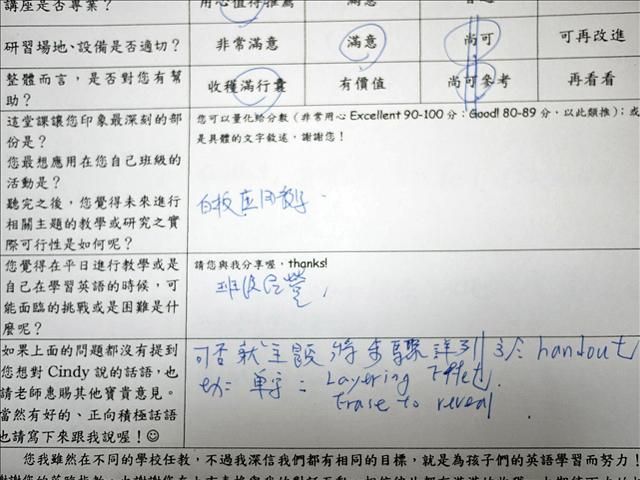 講座是否專業? 用心值得推薦 滿意 普通
研習場地、設備是否適切? 非常滿意 滿意 尚可 可再改進
整體而言,是否對您有幫助? 收穫滿行囊 有價值 尚可參考 再看看
這堂課讓您印象最深刻的部份是?
您最想應用在您自己班級的活動是?
聽完之後,您覺得未來進行相關主題的教學或研究之實際可行性是如何呢?
您可以量化給分數(非常用心 Excellent 90-100 分;Good! 80-89 分,以此類推);或是具體的文字敘述,謝謝您!
白板應用教學
您覺得在平日進行教學或是自己在學習英語的時候,可能面臨的挑戰或是困難是什麼呢?
請您與我分享喔,thanks!
班級經營,
如果上面的問題都沒有提到您想對 Cindy 說的話語,也請老師惠賜其他寶貴意見。
當然有好的、正向積極話語也請寫下來跟我說喔!☺
可否就主題將步驟詳列 handout
如: 單字: Layering Effect,
Erase to reveal
您我雖然在不同的學校任教,不過我深信我們都有相同的目標,就是為孩子們的英語學習而努力!